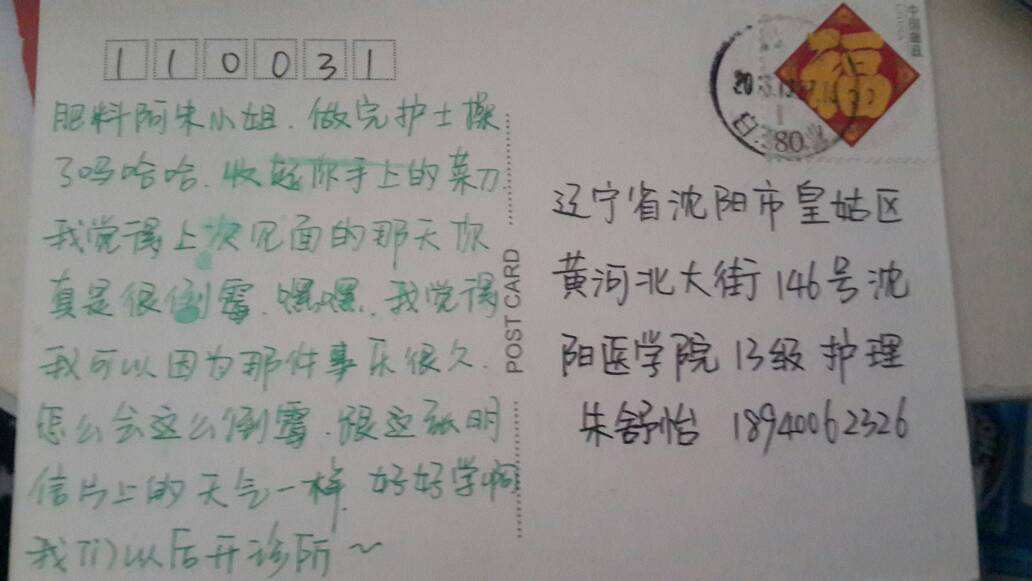 110031
肥料阿朱小姐.做完护士操
了吗哈哈.收起你手上的菜刀.
我觉得上次见面的那天你
真是很倒霉.嘿嘿.我觉得
我可以因为那件事乐很久.
怎么会这么倒霉.跟这张明
信片上的天气一样.好好学啊
我们以后开诊所~
POST CARD
中国邮政
福
80
辽宁省沈阳市皇姑区
黄河北大街146号沈
阳医学院13级护理
朱舒怡 18940062326